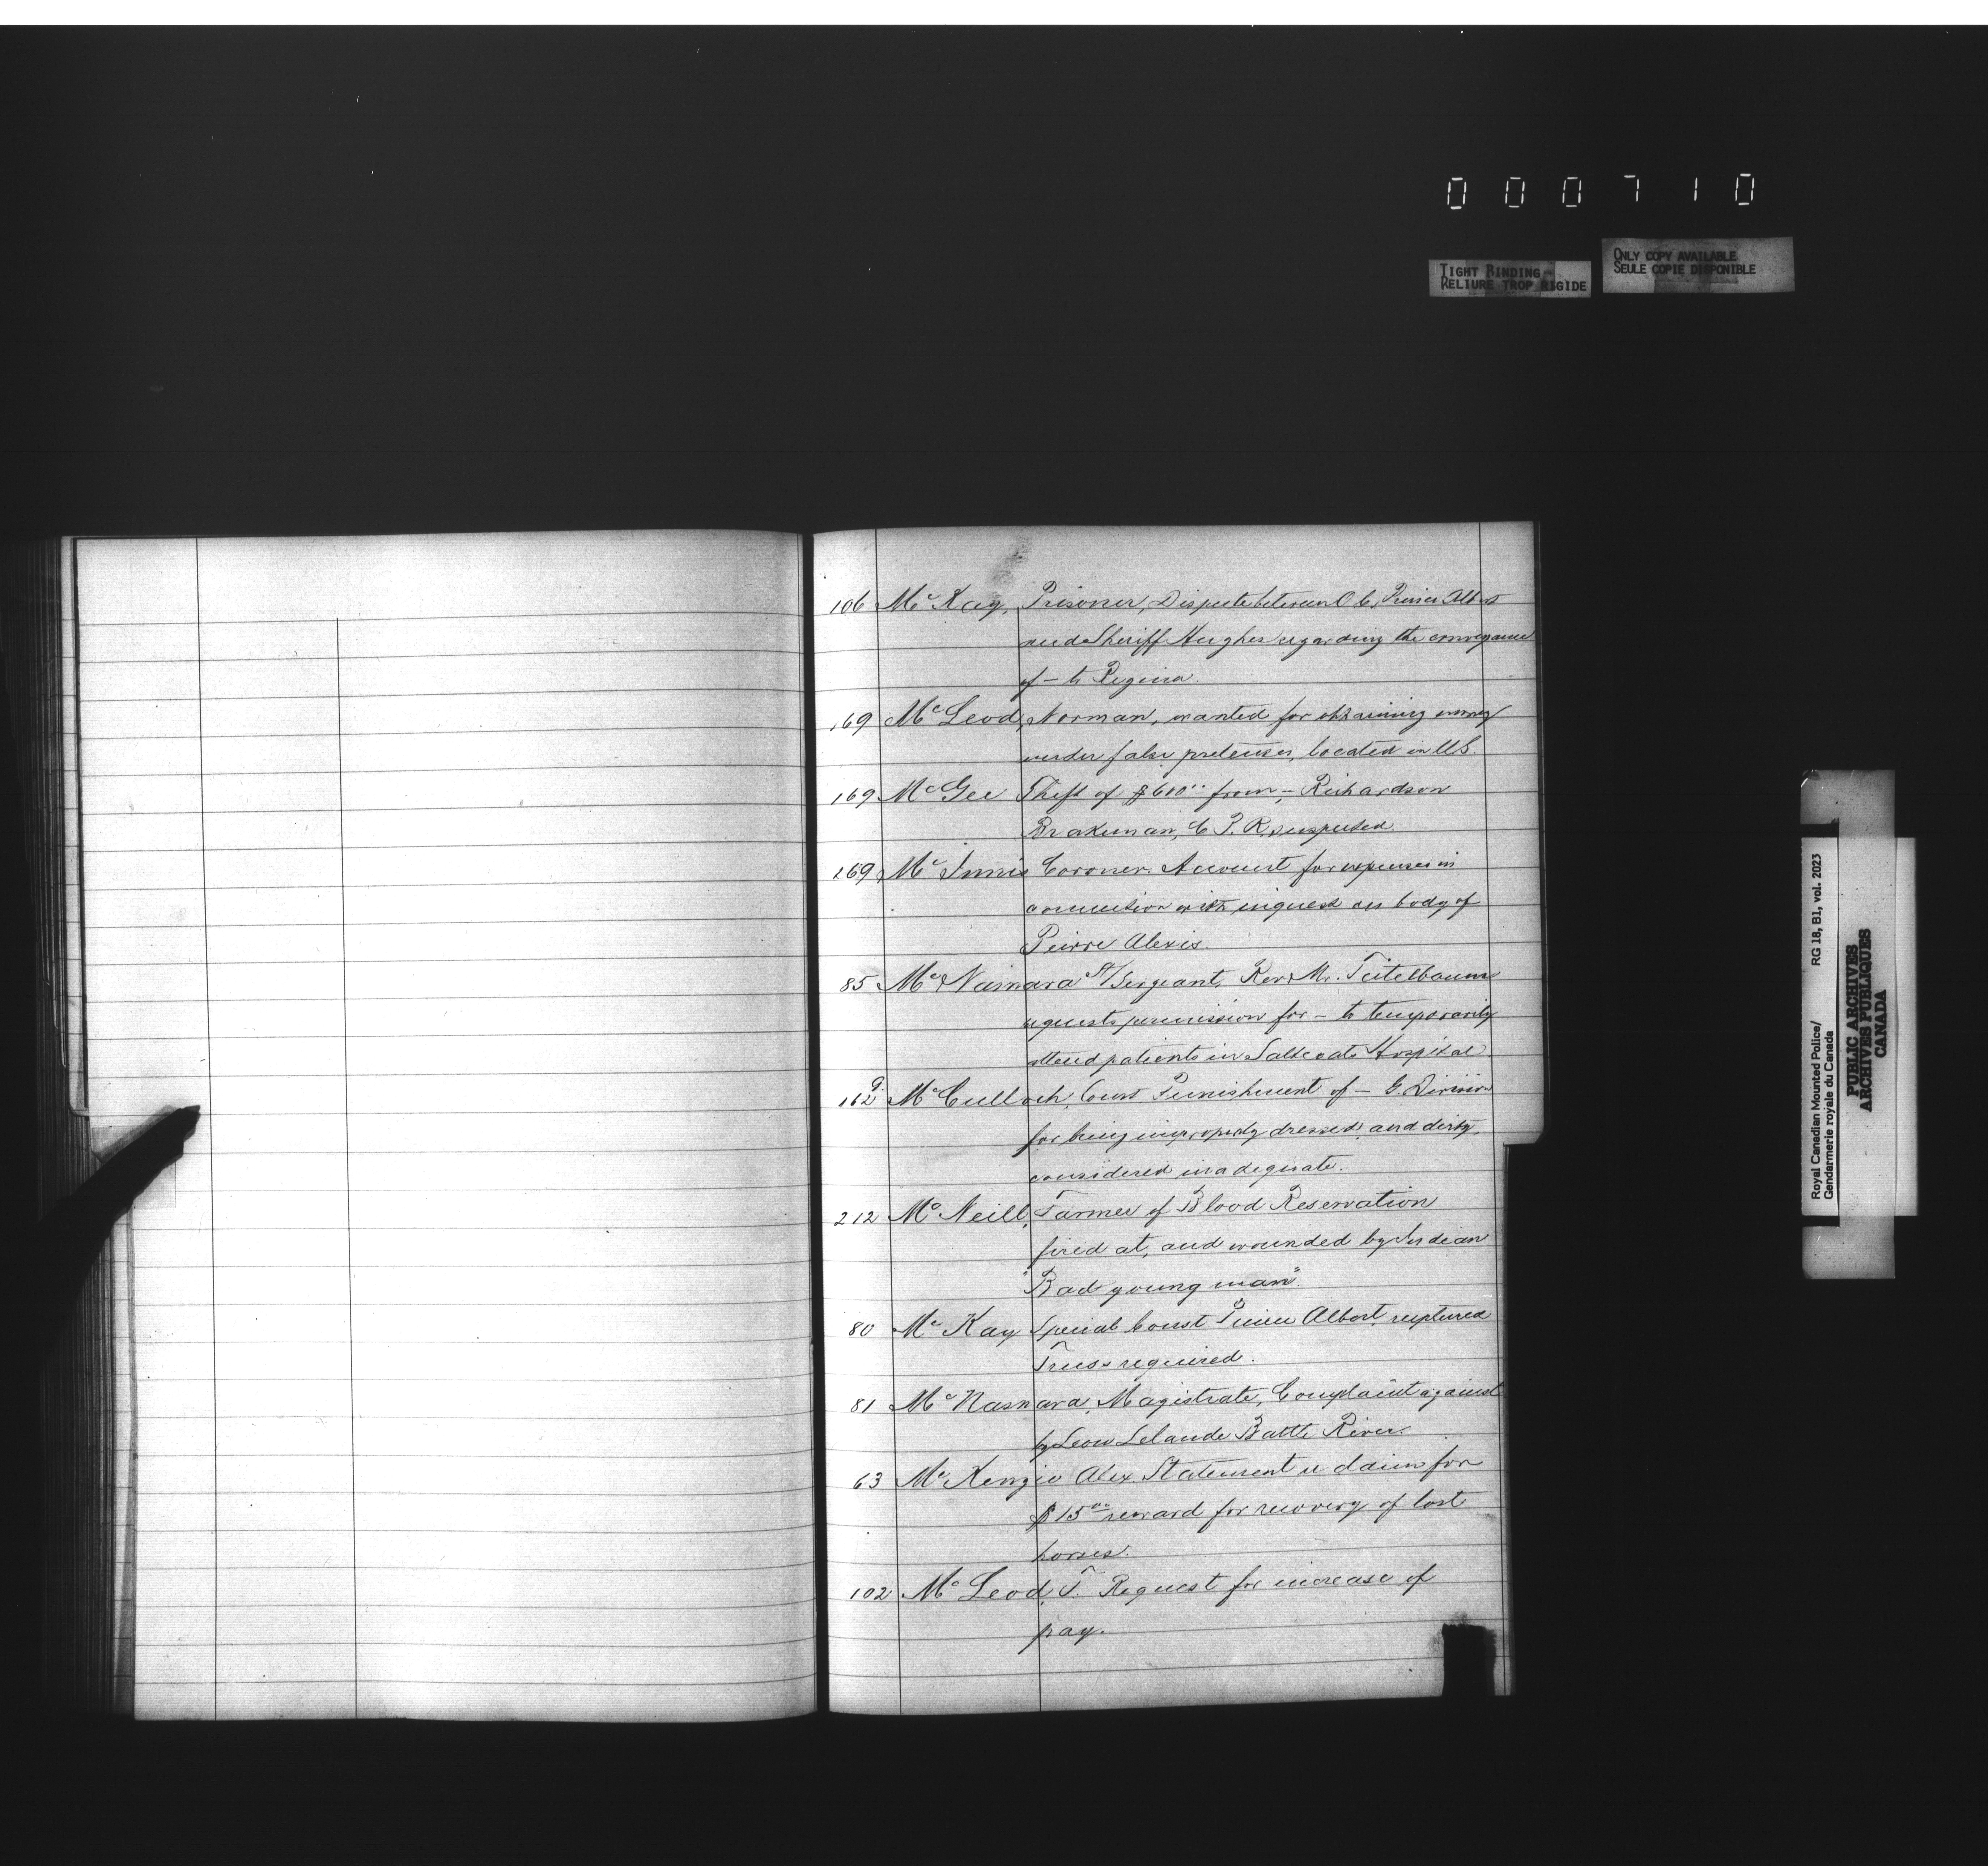 000710
TIGHT BINDING
RELIURE TROP RIGIDE
ONLY COPY AVAILABLE
SEULE COPIE DISPONIBLE
106 McKay, Prisoner, Dispute between O.C. Prince Albert
and Sheriff Hughes regarding the conveyance
of — to Regina.
169 McLeod, Norman, wanted for obtaining money
under false pretenses, located in U.S.
169 McGee Theft of $600.00 from — Richardson
Brakeman, C.P.R. suspected.
169 McInnis Coroner. Account for expenses in
connection with inquest on body of
Peirre Alexis.
85 McNamara St/Sergeant, Rev. Mr. Teitelbaum
requests permission for — to temporarily
attend patients in Saltcoats Hospital.
162 G. McCulloch, Const. Punishment of — G. Division
for being improperly dressed, and dirty.
considered inadequate.
212 McNeill, Farmer of Blood Reservation
fired at, and wounded by Indian
"Bad young man".
80 McKay Special Const Prince Albert ruptured
Truss required.
81 McNamara, Magistrate, Complaint against
by Leon Lelaude Battle River.
63 McKenzie Alex. Statement re claim for
$15.00 reward for recovery of lost
horses.
102 McLeod, T. Request for increase of
pay.
Royal Canadian Mounted Police/
Gendarmerie royale du Canada
RG 18, B1, vol. 2023
PUBLIC ARCHIVES
ARCHIVES PUBLIQUES
CANADA